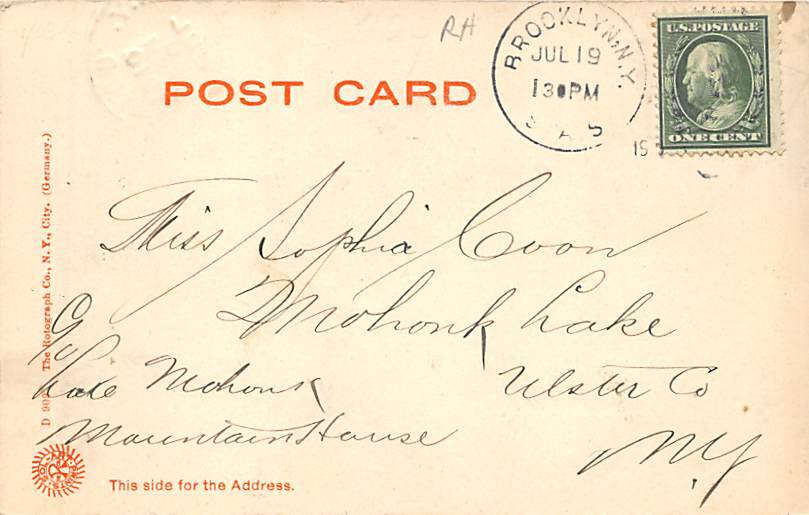 RH
BROOKLYN, N.Y.
JUL 19
130 PM
U.S. POSTAGE
ONE CENT
POST CARD
Miss Sophia Coon
Mohonk Lake
Ulster Co
N.Y
C/o
Lake Mohonk
Mountain House
The Rotograph Co., N. Y., City. (Germany.)
This side for the Address.